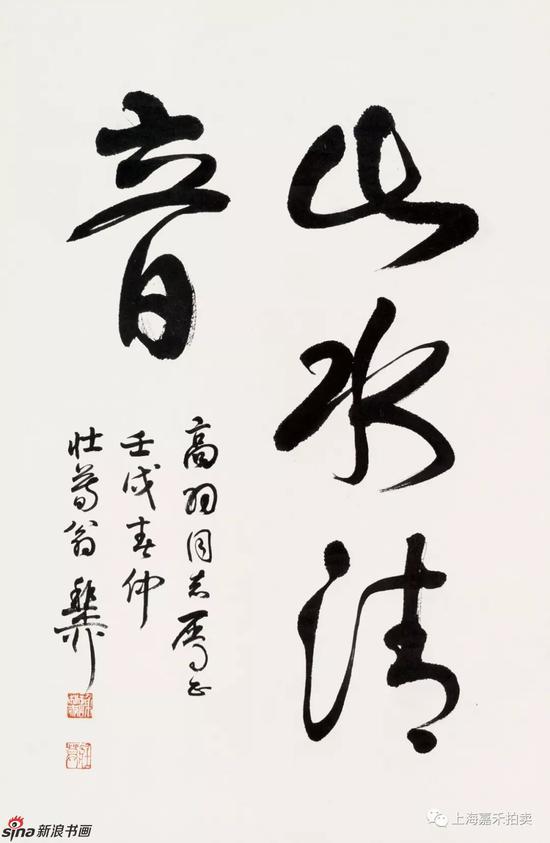 山水清
音
高羽同志属正
壬戌春仲
壮暮翁稚柳
sina新浪书画
上海嘉禾拍卖